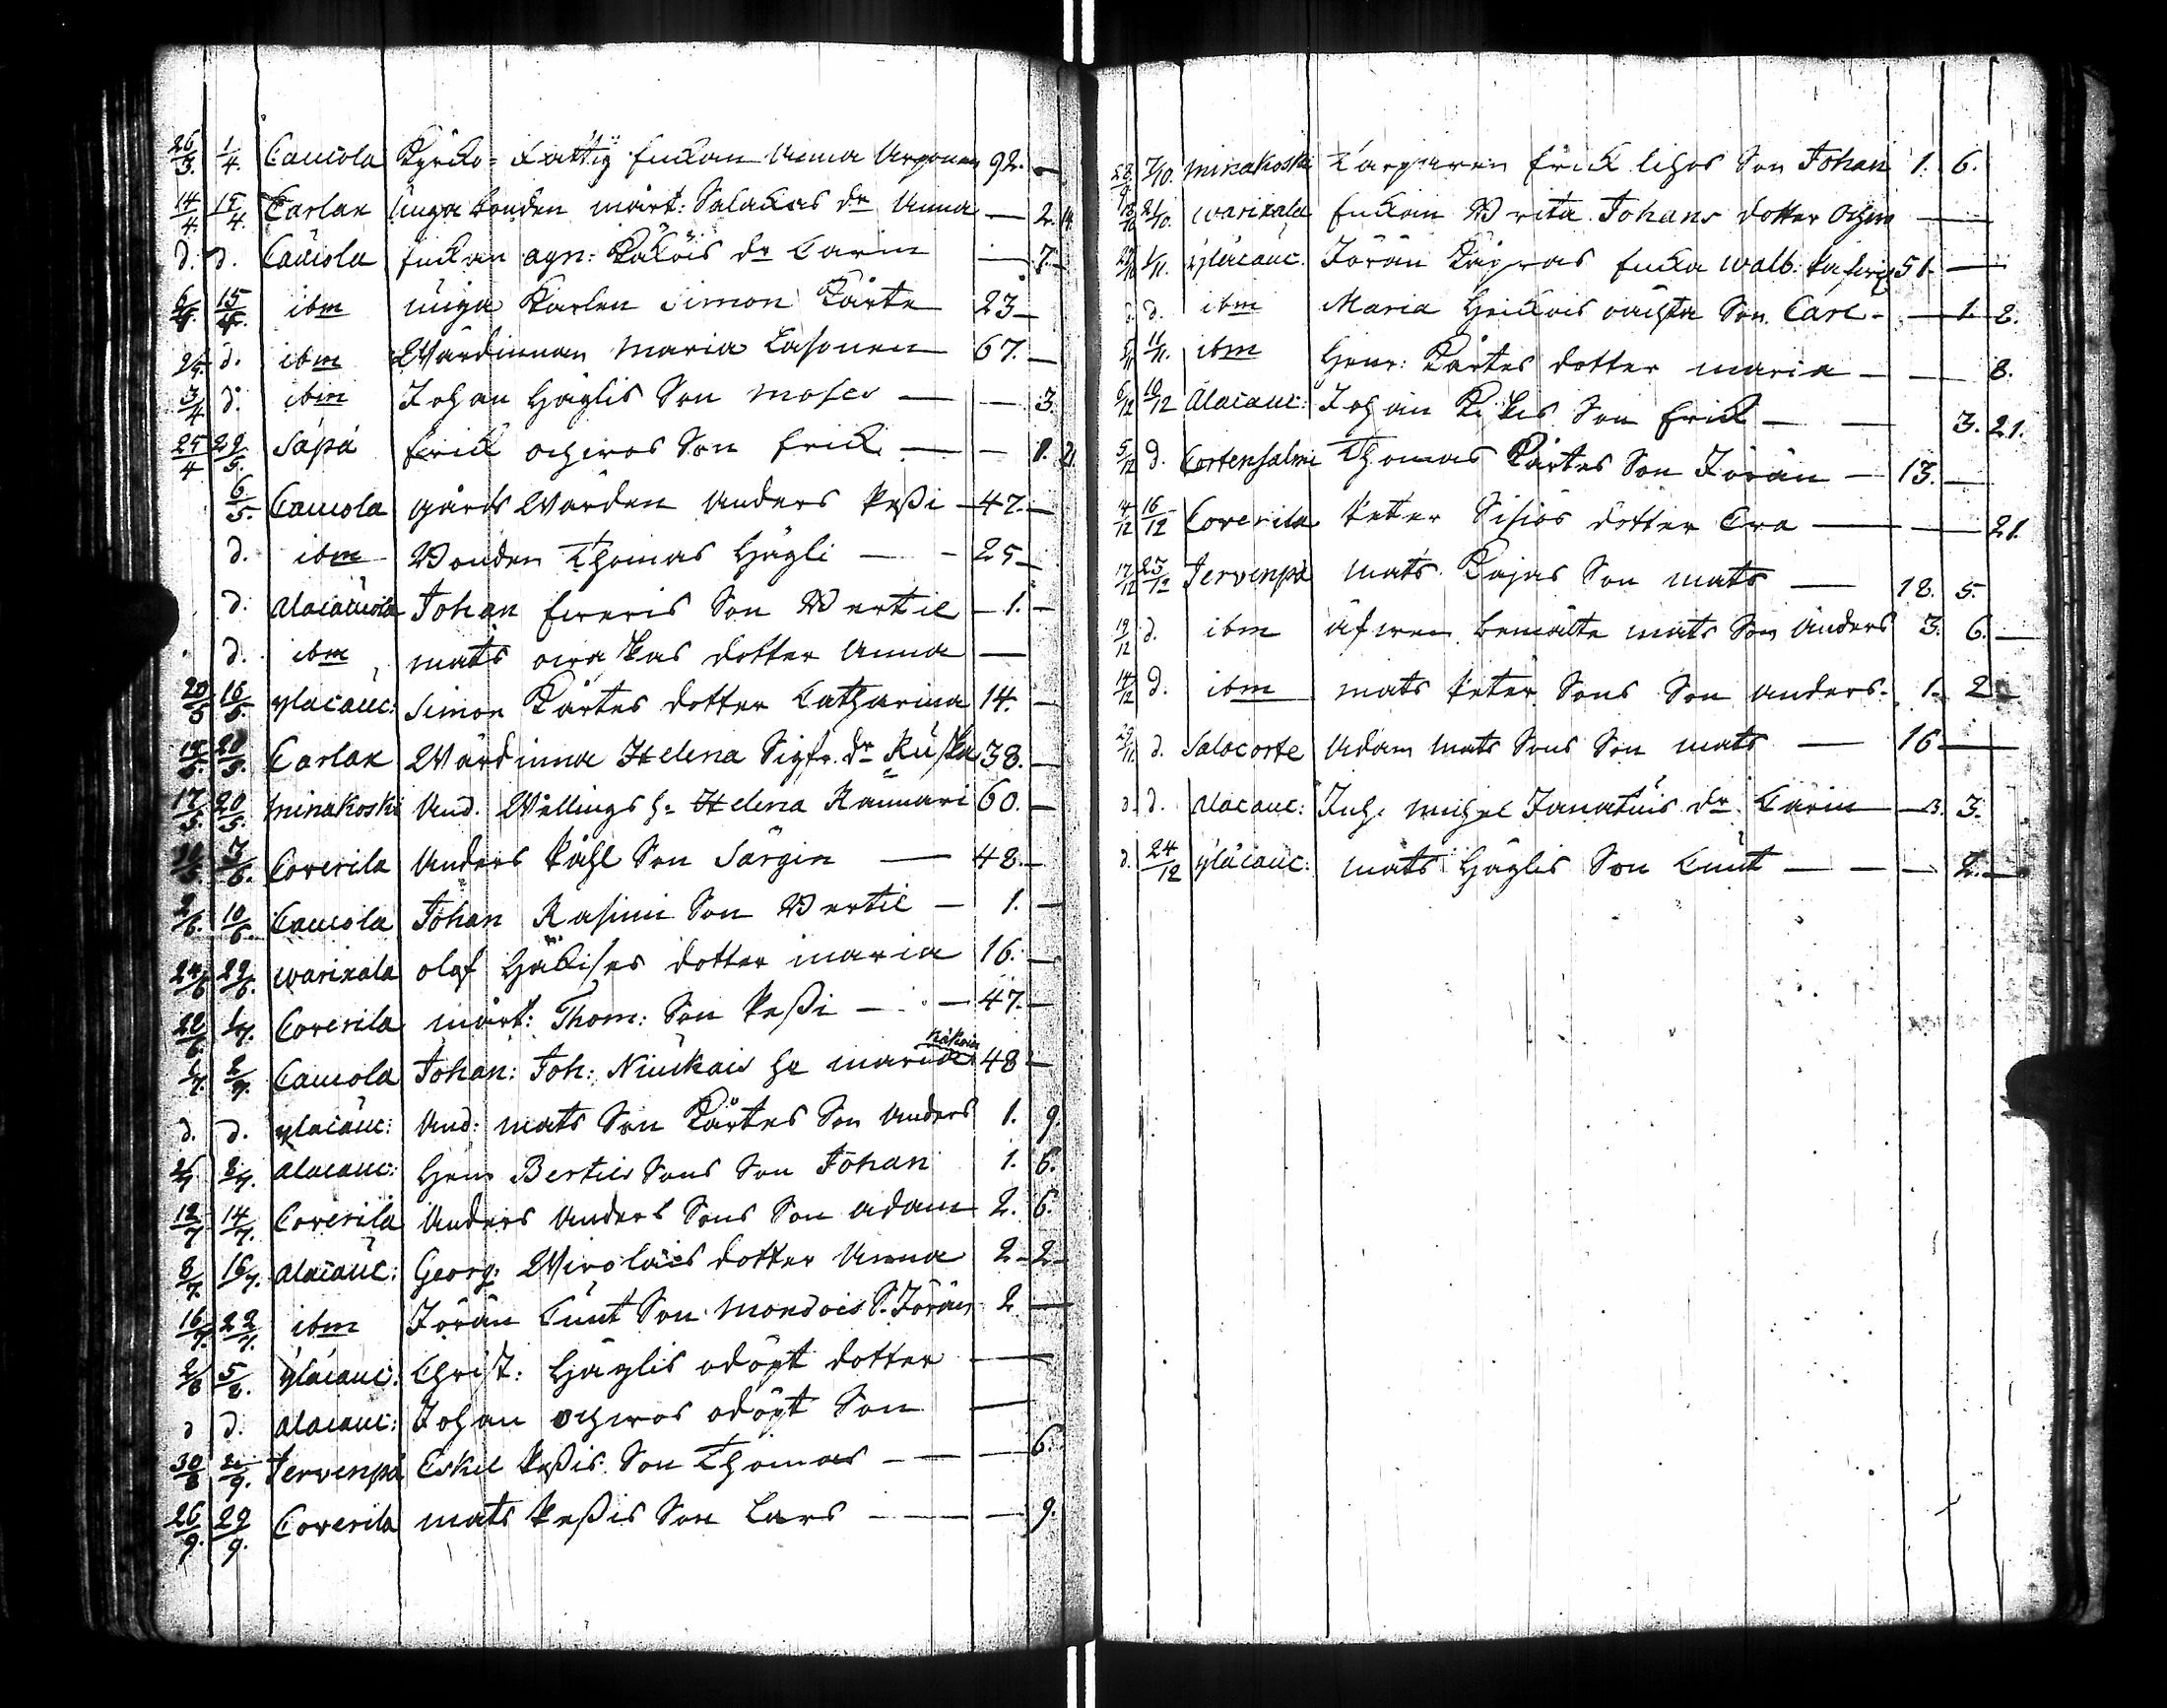 26/3. 1/4. Cauiola Kyrko-Fattig Enkan Anna Arponen 92. —
14/4. 15/4. Carlax unga bonden mårt: Salakas dr Anna — 2. 14
d. d. Cauiola Enkan agn: Käköis dr Carin — 7.
6/4. 15/4. ibm unga Karlen Simon Kärte 23 —
d. ibm Wärdinnan Maria Lasonen 67. —
3/4 d. ibm Johan Häglis Son Moses — — 3.
25/4 29/5. Säpä Erick ochwos Son Erick — — 1. 21
6/5. Cauiola gårds Wärden Anders Peßi — 47. —
d. ibm Bonden Thomas Hägli — — 25 —
d. Alacauiola Johan Eweris Son Bertil — 1. —
d. ibm mats dotter Anna —
20/5 16/5. ylacauc: Simon Kärtes dotter Catharina 14. —
19/5. 20/5. Carlax Wärdinna Helena Sigfr. dr Ruska 38. —
17/5. 20/5. Minakoski And. Wällings h. Helena Rannari 60. —
7/6. Coverila Anders Påhl Son Särgin — 48. —
9/6. 10/6. Cauiola Johan Rasimi Son Bertil — 1. —
24/6 29/6. warixala olof Häkises dotter maria 16. —
22/6. 1/7. Coverila mårt: Thom: Son Peßi — — 47. —
1/7. 2/7. Cauiola Johan: Joh: Niuckais h. maria Käköin 48 —
d. d. ylacauc: And: mats Son Kärtes Son Anders 1. 9.
2/7 2/7. alacauc: Hens Bertils Sons Son Johan 1. 6.
12/7 14/7. Coverila Anders Anders Sons Son adam 2. 6.
8/7. 16/7. alacauc: Georg: Wirolais dotter Anna 2 — 2 —
16/7. 22/7. ibm Jöran Cnut Son Mondois S. Jöran 2 —
2/8 5/8. ylacauc: Christ: Häglis odöpt dotter —
d d. alacauc: Johan ochwos odöpt Son —
30/8 /9. Jervenpä Eskel Peßis Son Thomas — — 6.
26/9. 29/9. Coverila mats Peßis Son Lars — — 9.
28/9 7/10. Minakoski Erick lihos Son Johan 1. 6.
2/10. warixala Enkan Brita Johans dotter —
1/11. ylacauc. Jöran Käyras Enka Walb: 51. —
d. ibm Maria Heickois oächta Son Carl — — 1. 2.
11/11. ibm Henr: Kärtes dotter maria — — 8.
6/12 10/12 Alacauc: Johan Son Erick — — 3. 21.
5/12 d. Cortensalmi Thomas Kärtes Son Jöran — 13. —
14/12 16/12 Coverila Peter Sihios dotter Eva — — 21.
17/12 25/12 Jervenpä mats Rajas Son mats — 18. 5.
19/12 d. ibm äfwen bemälte mats Son Anders 3. 6. —
14/12 d. ibm mats Peter Sons Son Anders. 1. 2 —
29/11 d. Salocorte Adam Mats Sons Son mats — 16 —
d. d. alacauc: Inh. Michel Janatuis dr Carin — 3. 3.
d. 24/12 ylacauc: mats Häglis Son Cnut — — — 2. —